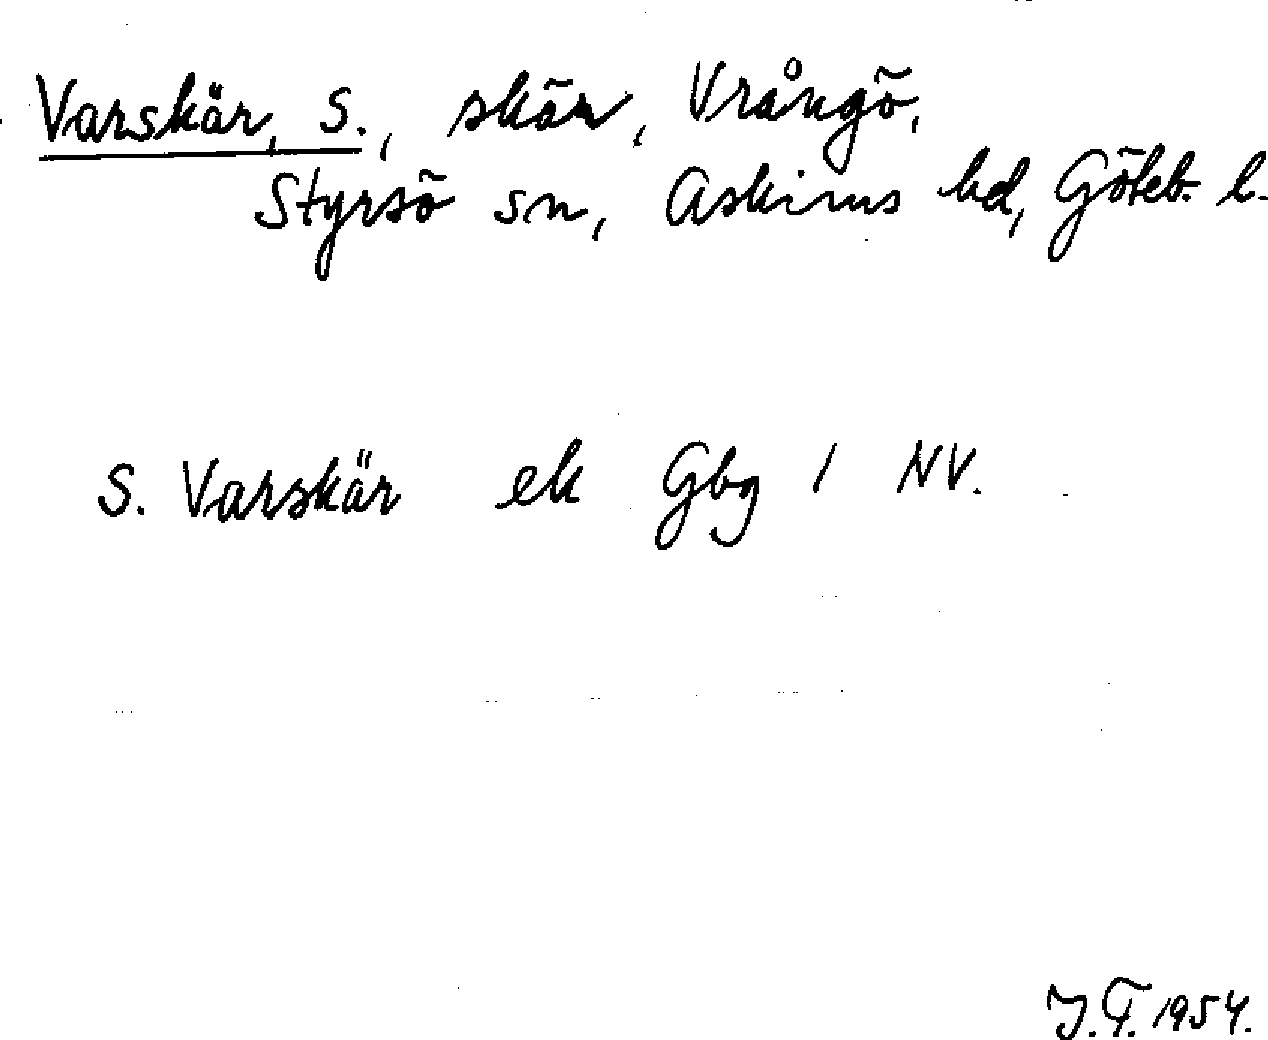 Varskär, S., skär, Vrångö,
Styrsö sn, Askims hd, Göteb. l.
S. Varskär ek Gbg 1 NV.
J.F. 1954.